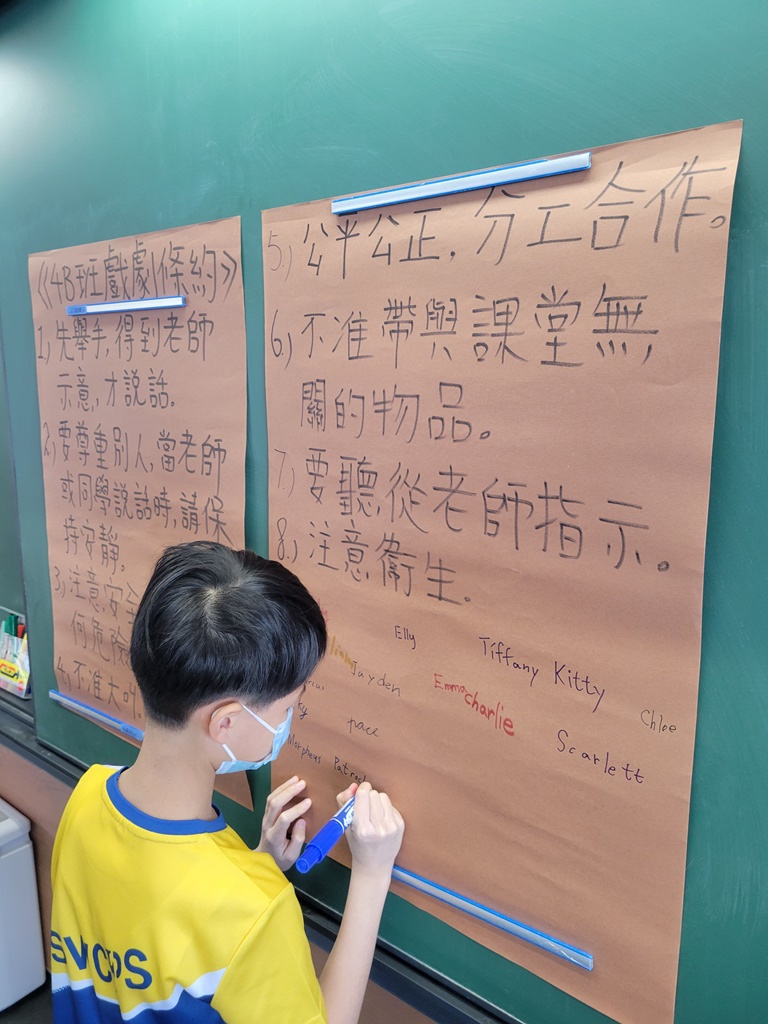 《4B班戲劇條約》
1.) 先舉手,得到老師
示意,才說話。
2.) 要尊重別人,當老師
或同學說話時,請保
持安靜。
3.) 注意安全
何危險
4.) 不准大叫
5.) 公平公正,分工合作。
6.) 不准帶與課堂無
關的物品。
7.) 要聽從老師指示。
8.) 注意衞生。
Elly
Tiffany Kitty
Jayden
Emma
charlie
Chloe
pace
Scarlett
Morpheus